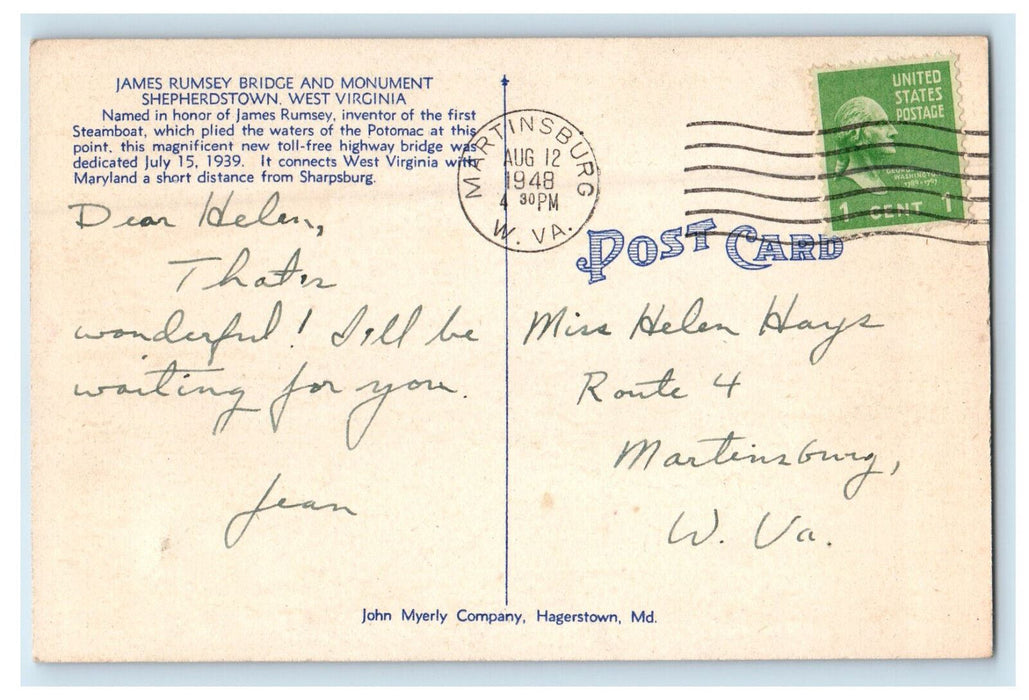 JAMES RUMSEY BRIDGE AND MONUMENT
SHEPHERDSTOWN, WEST VIRGINIA
Named in honor of James Rumsey, inventor of the first
Steamboat, which plied the waters of the Potomac at this
point, this magnificent new toll-free highway bridge was
dedicated July 15, 1939. It connects West Virginia with
Maryland a short distance from Sharpsburg.
Dear Helen,
That's
wonderful! I'll be
waiting for you.
Jean
MARTINSBURG
AUG 12
1948
4 30 PM
W. VA.
UNITED
STATES
POSTAGE
GEORGE
WASHINGTON
1789-1797
1 CENT 1
POST CARD
Miss Helen Hays
Route 4
Martinsburg,
W. Va.
John Myerly Company, Hagerstown, Md.